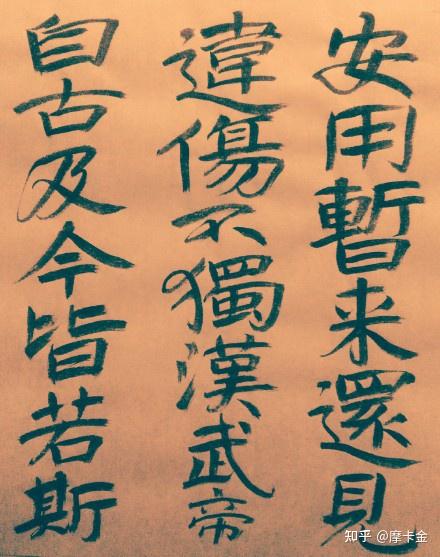 安用暫来還見
違傷不獨漢武帝
自古及今皆若斯
知乎 @摩卡金